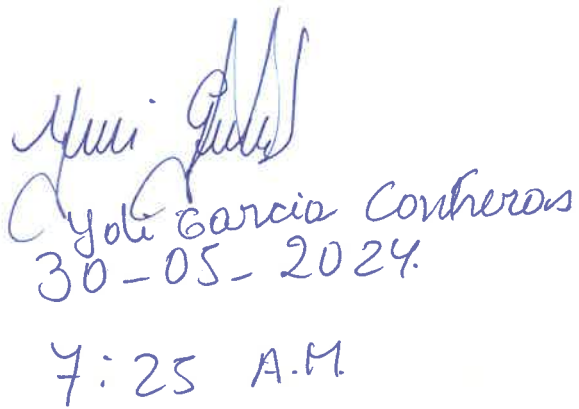 Yoli Garcia Contreras
30-05-2024.
7:25 A.M.